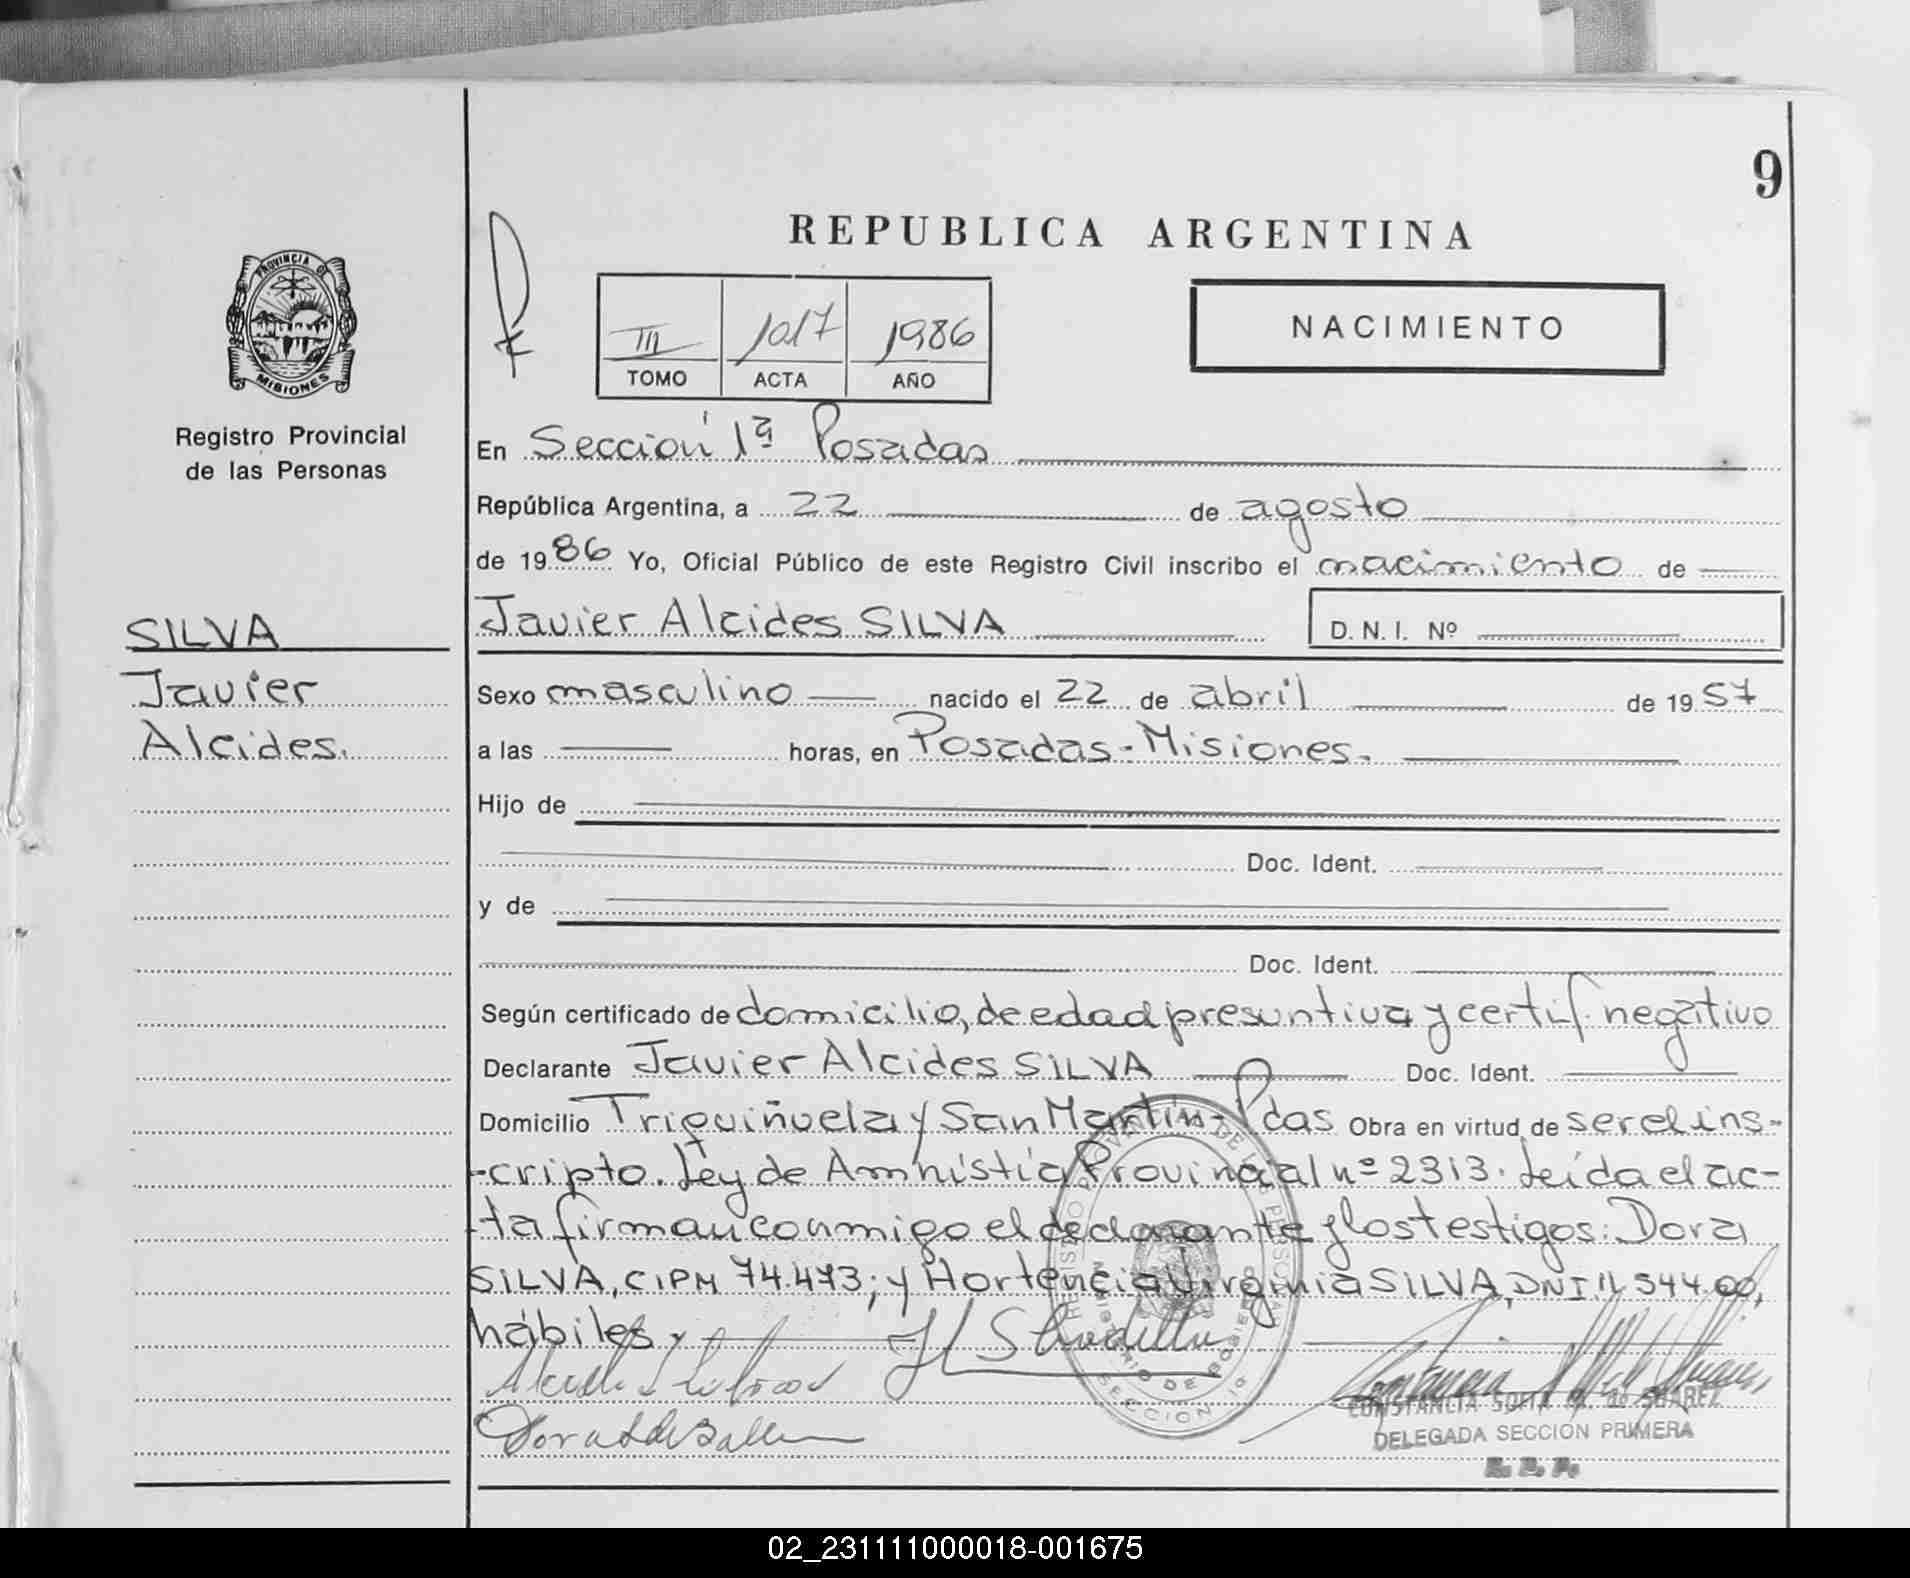 9
REPUBLICA ARGENTINA
PROVINCIA DE
MISIONES
Registro Provincial
de las Personas
III 1017 1986
TOMO ACTA AÑO
NACIMIENTO
En Sección 1ª Posadas
República Argentina, a 22 de agosto
de 1986 Yo, Oficial Público de este Registro Civil inscribo el nacimiento de
SILVA
Javier
Alcides.
Javier Alcides SILVA D. N. I. Nº
Sexo masculino nacido el 22 de abril de 1957
a las horas, en Posadas - Misiones.
Hijo de
Doc. Ident.
y de
Doc. Ident.
Según certificado de domicilio, de edad presuntiva y certif. negativo
Declarante Javier Alcides SILVA Doc. Ident.
Domicilio Triguiñuela y San Martín - Pdas Obra en virtud de ser el ins-
-cripto. Ley de Amnistía Provincial nº 2313. Leída el ac-
-ta firman conmigo el declarante y los testigos: Dora
SILVA, CIPM 74.473; y Hortencia Virginia SILVA, DNI 11.544.00,
hábiles
CONSTANCIA SOFIA de SUAREZ
DELEGADA SECCION PRIMERA
R. P. P.
02_231111000018-001675